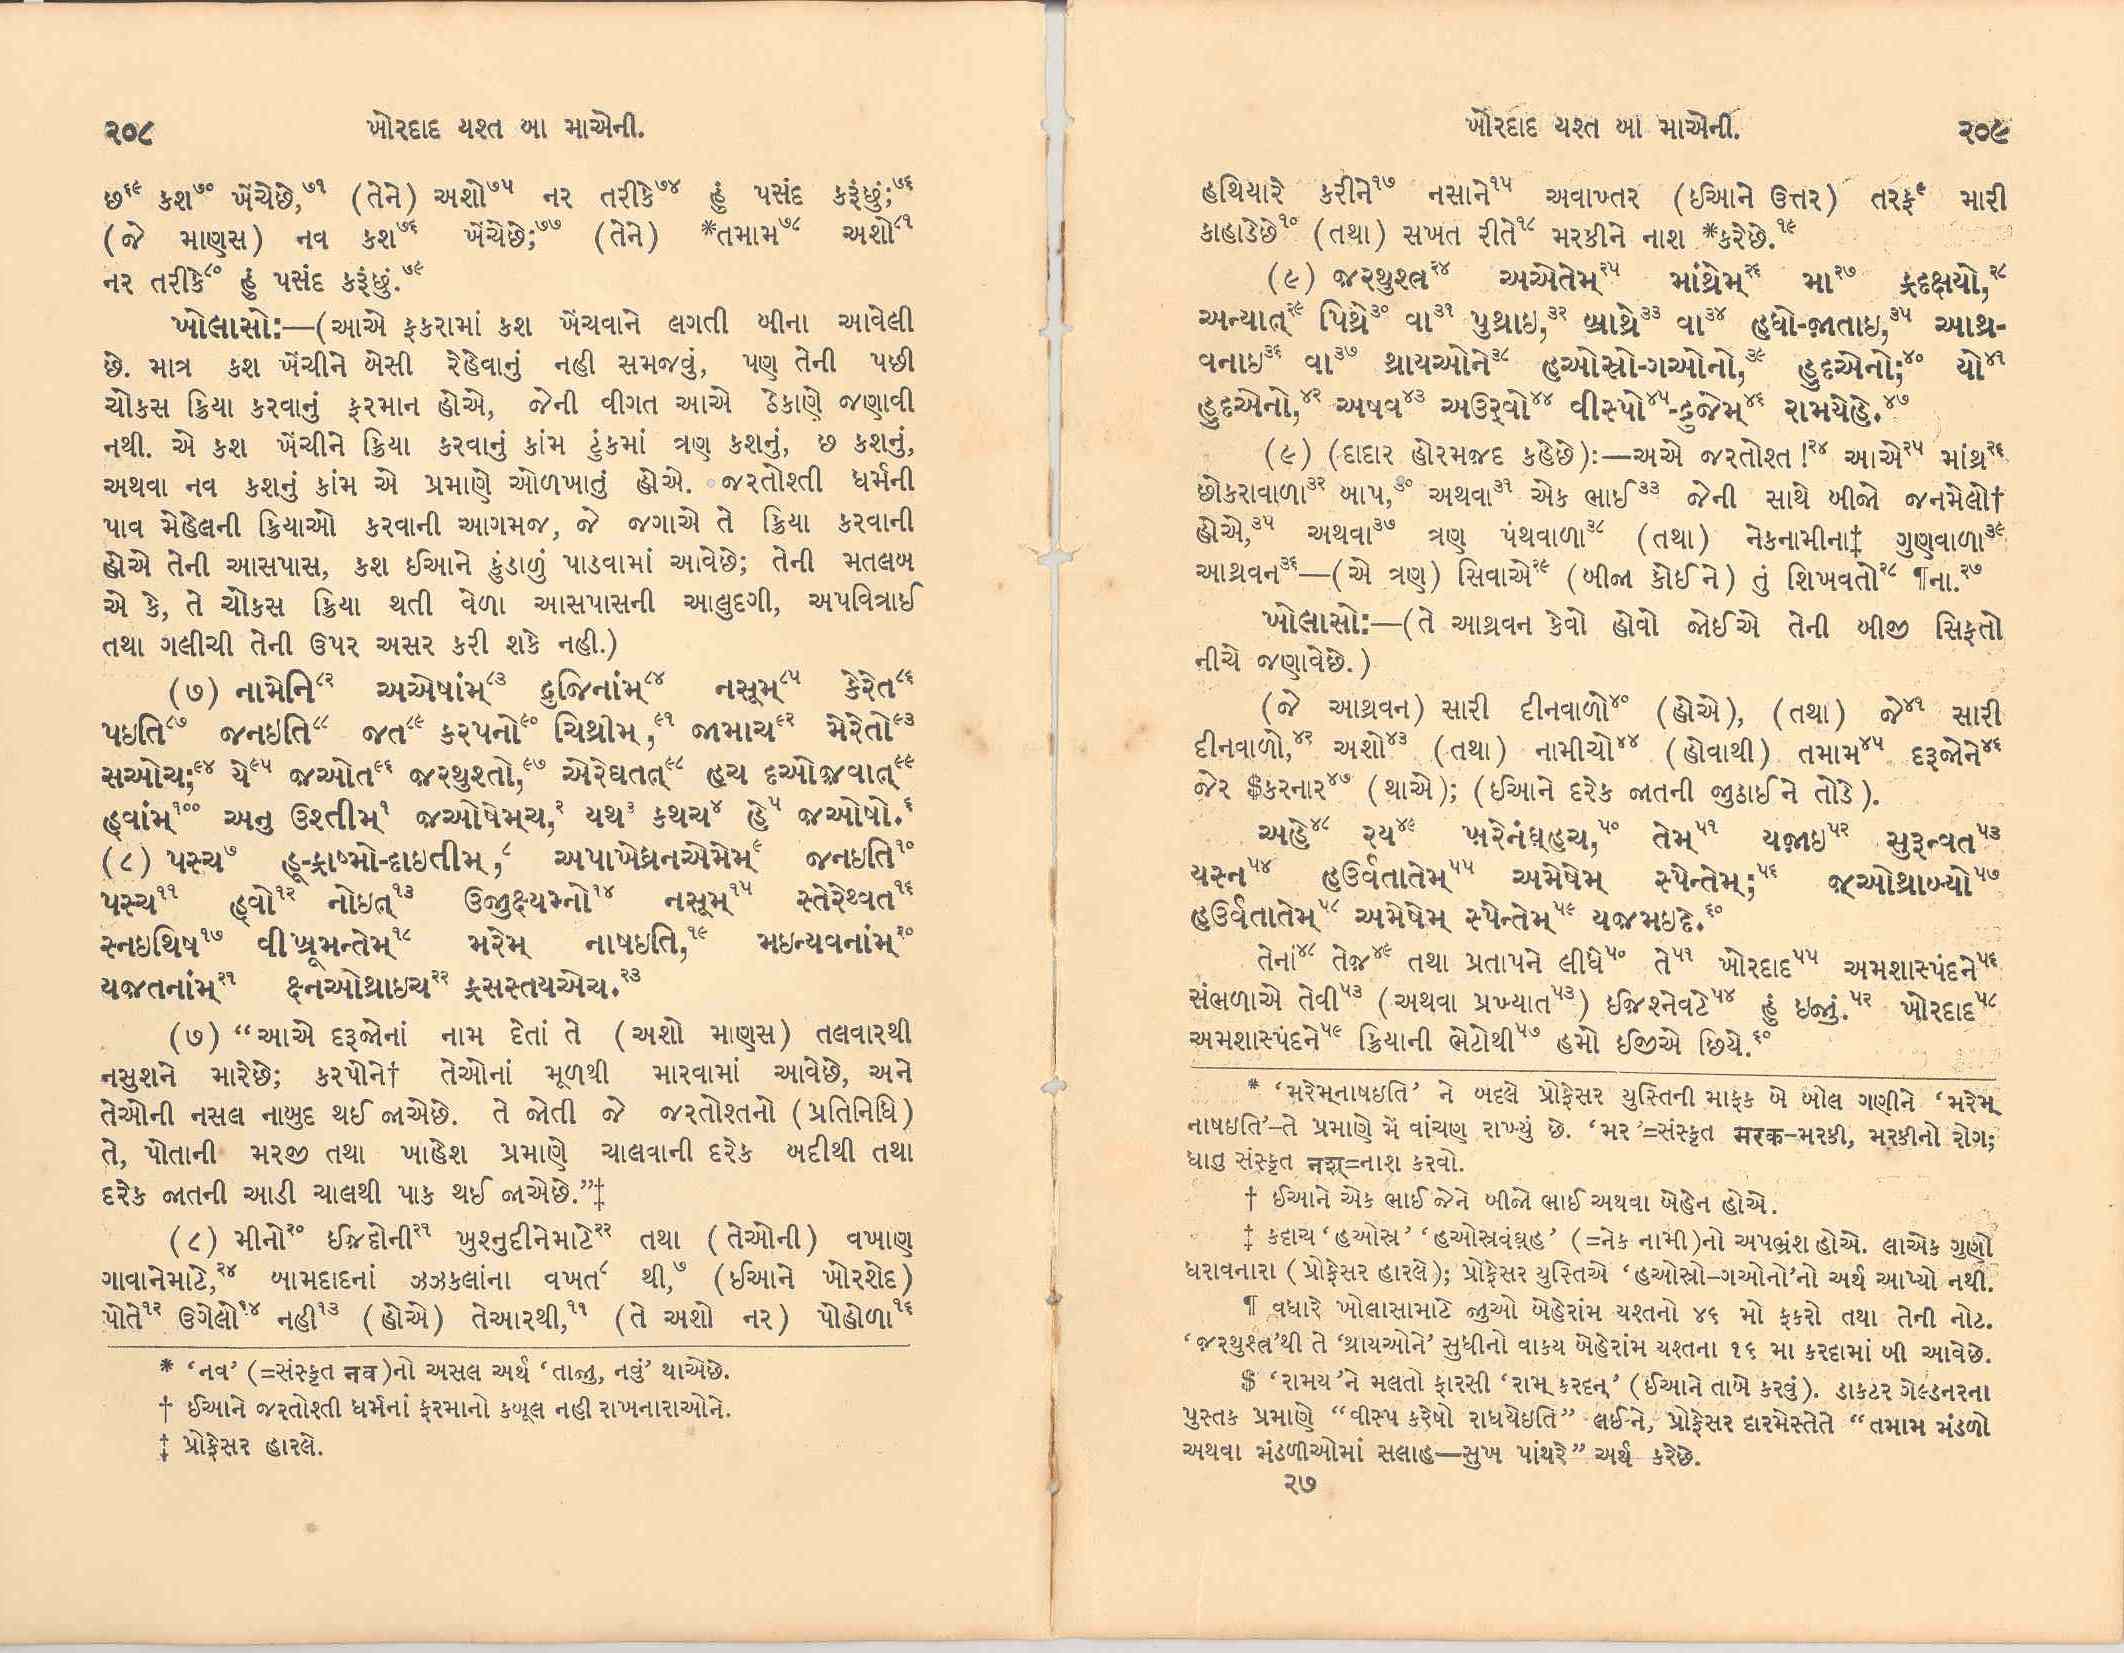 ૨૦૮ ખોરદાદ યશ્ત બા માએની.
છ૬૯ કશ૭૦ ખેંચેછે,૭૧ (તેને) અશો૭૫ નર તરીકે૭૪ હું પસંદ કરૂંછું;૭૬
(જે માણસ) નવ કશ૭૬ ખેંચેછે;૭૭ (તેને) *તમામ૭૮ અશો૮૧
નર તરીકે૮૦ હું પસંદ કરૂંછું.૭૯
ખોલાસો:—(આએ ફકરામાં કશ ખેંચવાને લગતી બીના આવેલી
છે. માત્ર કશ ખેંચીને બેસી રેહેવાનું નહી સમજવું, પણ તેની પછી
ચોકસ ક્રિયા કરવાનું ફરમાન હોએ, જેની વીગત આએ ઠેકાણે જણાવી
નથી. એ કશ ખેંચીને ક્રિયા કરવાનું કાંમ ટુંકમાં ત્રણ કશનું, છ કશનું,
અથવા નવ કશનું કાંમ એ પ્રમાણે ઓળખાતું હોએ. જરતોશ્તી ધર્મની
પાવ મેહેલની ક્રિયાઓ કરવાની આગમજ, જે જગાએ તે ક્રિયા કરવાની
હોએ તેની આસપાસ, કશ ઈઆને કુંડાળું પાડવામાં આવેછે; તેની મતલબ
એ કે, તે ચોકસ ક્રિયા થતી વેળા આસપાસની આલુદગી, અપવિત્રાઈ
તથા ગલીચી તેની ઉપર અસર કરી શકે નહી.)
(૭) નામેનિ૮૨ અએષાંમ્૮૩ દ્રુજિનાંમ્૮૪ નસૂમ્૮૫ કેરેત૮૬
પઇતિ૮૭ જનઇતિ૮૮ જત૮૯ કરપનો૯૦ ચિથ્રીમ્,૯૧ જામાચ૯૨ મેરેતો૯૩
સઓચ;૯૪ યે૯૫ જઓત૯૬ જરથુશ્તો,૯૭ એરેઘતત્૯૮ હચ દઓજવાત્૯૯
હ્વાંમ્૧૦૦ અનુ ઉશ્તીમ્૧ જઓષેમ્ચ,૨ યથ૩ કથચ૪ હે૫ જઓષો.૬
(૮) પસ્ચ૭ હૂ-ફ્રાષ્મો-દાઇતીમ્,૮ અપાખેધ્રનએમેમ્૯ જનઇતિ૧૦
પસ્ચ૧૧ હ્વો૧૨ નોઇત્૧૩ ઉજીક્ષ્યમ્નો૧૪ નસૂમ્૧૫ સ્તેરેથ્વત૧૬
સ્નઇથિષ૧૭ વીખ્રૂમન્તેમ્૧૮ મરેમ્ નાષઇતિ,૧૯ મઇન્યવનાંમ્૨૦
યજતનાંમ્૨૧ ક્ષ્નઓથ્રાઇચ૨૨ ફ્રસસ્તયએચ.૨૩
(૭) “આએ દરૂજોનાં નામ દેતાં તે (અશો માણસ) તલવારથી
નસુશને મારેછે; કરપોને† તેઓનાં મૂળથી મારવામાં આવેછે, અને
તેઓની નસલ નાબુદ થઈ જાએછે. તે જોતી જે જરતોશ્તનો (પ્રતિનિધિ)
તે, પોતાની મરજી તથા ખાહેશ પ્રમાણે ચાલવાની દરેક બદીથી તથા
દરેક જાતની આડી ચાલથી પાક થઈ જાએછે.”‡
(૮) મીનો૨૦ ઈજદોની૨૧ ખુશ્નુદીનેમાટે૨૨ તથા (તેઓની) વખાણ
ગાવાનેમાટે,૨૪ બામદાદનાં ઝઝકલાંના વખત૮ થી,૭ (ઈઆને ખોરશેદ)
પોતે૧૨ ઉગેલો૧૪ નહી૧૩ (હોએ) તેઆરથી,૧૧ (તે અશો નર) પોહોળા૧૬
* ‘નવ’ (=સંસ્કૃત नव)નો અસલ અર્થ ‘તાજી, નવું’ થાએછે.
† ઈઆને જરતોશ્તી ધર્મનાં ફરમાનો કબૂલ નહી રાખનારાઓને.
‡ પ્રોફેસર હારલે.
ખોરદાદ યશ્ત બા માએની. ૨૦૯
હથિયારે કરીને૧૭ નસાને૧૫ અવાખ્તર (ઈઆને ઉત્તર) તરફ૯ મારી
કાહાડેછે૧૦ (તથા) સખત રીતે૧૮ મરકીને નાશ *કરેછે.૧૯
(૯) જરથુશ્ત્ર૨૪ અએતેમ્૨૫ માંથ્રેમ્૨૬ મા૨૭ ફ્રદક્ષયો,૨૮
અન્યાત્૨૯ પિથ્રે૩૦ વા૩૧ પુથ્રાઇ,૩૨ બ્રાથ્રે૩૩ વા૩૪ હધો-જાતાઇ,૩૫ આથ્ર-
વનાઇ૩૬ વા૩૭ થ્રાયઓને૩૮ હઓસ્રો-ગઓનો,૩૯ હુદએનો;૪૦ યો૪૧
હુદએનો,૪૨ અષવ૪૩ અઉર્વો૪૪ વીસ્પો૪૫-દ્રુજેમ્૪૬ રામયેહે.૪૭
(૯) (દાદાર હોરમજદ કહેછે):—અએ જરતોશ્ત!૨૪ આએ૨૫ માંથ્ર૨૬
છોકરાવાળા૩૨ બાપ,૩૦ અથવા૩૧ એક ભાઈ૩૩ જેની સાથે બીજો જનમેલો†
હોએ,૩૫ અથવા૩૭ ત્રણ પંથવાળા૩૮ (તથા) નેકનામીના‡ ગુણવાળા૩૯
આથ્રવન૩૬—(એ ત્રણ) સિવાએ૨૯ (બીજા કોઈને) તું શિખવતો૨૮ ¶ના.૨૭
ખોલાસો:—(તે આથ્રવન કેવો હોવો જોઈએ તેની બીજી સિફતો
નીચે જણાવેછે.)
(જે આથ્રવન) સારી દીનવાળો૪૦ (હોએ), (તથા) જે૪૧ સારી
દીનવાળો,૪૨ અશો૪૩ (તથા) નામીચો૪૪ (હોવાથી) તમામ૪૫ દરૂજોને૪૬
જેર $કરનાર૪૭ (થાએ); (ઈઆને દરેક જાતની જુઠાઈને તોડે).
અહે૪૮ રય૪૯ ખ઼રેનંઘ્રહચ,૫૦ તેમ્૫૧ યજાઇ૫૨ સુરૂન્વત૫૩
યસ્ન૫૪ હઉર્વતાતેમ્૫૫ અમેષેમ્ સ્પેન્તેમ્;૫૬ જઓથ્રાબ્યો૫૭
હઉર્વતાતેમ્૫૮ અમેષેમ્ સ્પેન્તેમ્૫૯ યજમઇદે.૬૦
તેનાં૪૮ તેજ૪૯ તથા પ્રતાપને લીધે૫૦ તે૫૧ ખોરદાદ૫૫ અમશાસ્પંદને૫૬
સંભળાએ તેવી૫૩ (અથવા પ્રખ્યાત૫૩) ઈજિશ્નેવટે૫૪ હું ઇજું.૫૨ ખોરદાદ૫૮
અમશાસ્પંદને૫૯ ક્રિયાની ભેટોથી૫૭ હમો ઈજીએ છિયે.૬૦
* ‘મરેમ્નાષઇતિ’ ને બદલે પ્રોફેસર યુસ્તિની માફક બે બોલ ગણીને ‘મરેમ્
નાષઇતિ’–તે પ્રમાણે મેં વાંચણ રાખ્યું છે. ‘મર’=સંસ્કૃત मरक–મરકી, મરકીનો રોગ;
ધાતુ સંસ્કૃત नश्=નાશ કરવો.
† ઈઆને એક ભાઈ જેને બીજો ભાઈ અથવા બેહેન હોએ.
‡ કદાચ ‘હઓસ્ર’ ‘હઓસ્રવંઘ્રહ’ (=નેક નામી)નો અપભ્રંશ હોએ. લાએક ગુણો
ધરાવનારા (પ્રોફેસર હારલે); પ્રોફેસર યુસ્તિએ ‘હઓસ્રો–ગઓનો’નો અર્થ આપ્યો નથી.
¶ વધારે ખોલાસામાટે જુઓ બેહેરાંમ યશ્તનો ૪૬ મો ફકરો તથા તેની નોટ.
‘જરથુશ્ત્ર’થી તે ‘થ્રાયઓને’ સુધીનો વાક્ય બેહેરાંમ યશ્તના ૧૬ મા કરદામાં બી આવેછે.
$ ‘રામય’ને મલતો ફારસી ‘રામ્ કરદન્’ (ઈઆને તાબે કરવું). ડાકટર ગેલ્ડનરના
પુસ્તક પ્રમાણે “વીસ્પ કરેષો રાધયેઇતિ” લઈને, પ્રોફેસર દારમેસ્તેતે “તમામ મંડળો
અથવા મંડળીઓમાં સલાહ—સુખ પાંથરે” અર્થ કરેછે.
૨૭